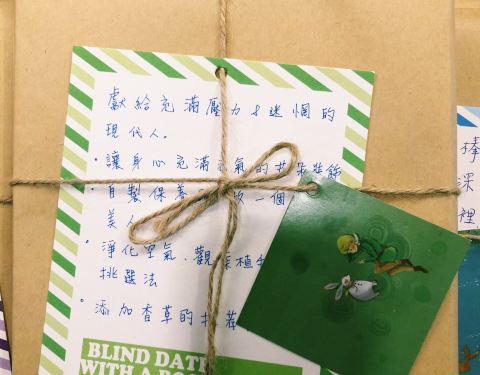 獻給充滿壓力&迷惘的
現代人.
·讓身心充滿 氣的 裝飾
·自製保養 一個
美人
·淨化空氣、觀 植
挑選法
·添加香草的
BLIND DAT
WITH A BOO
捧
深
裡